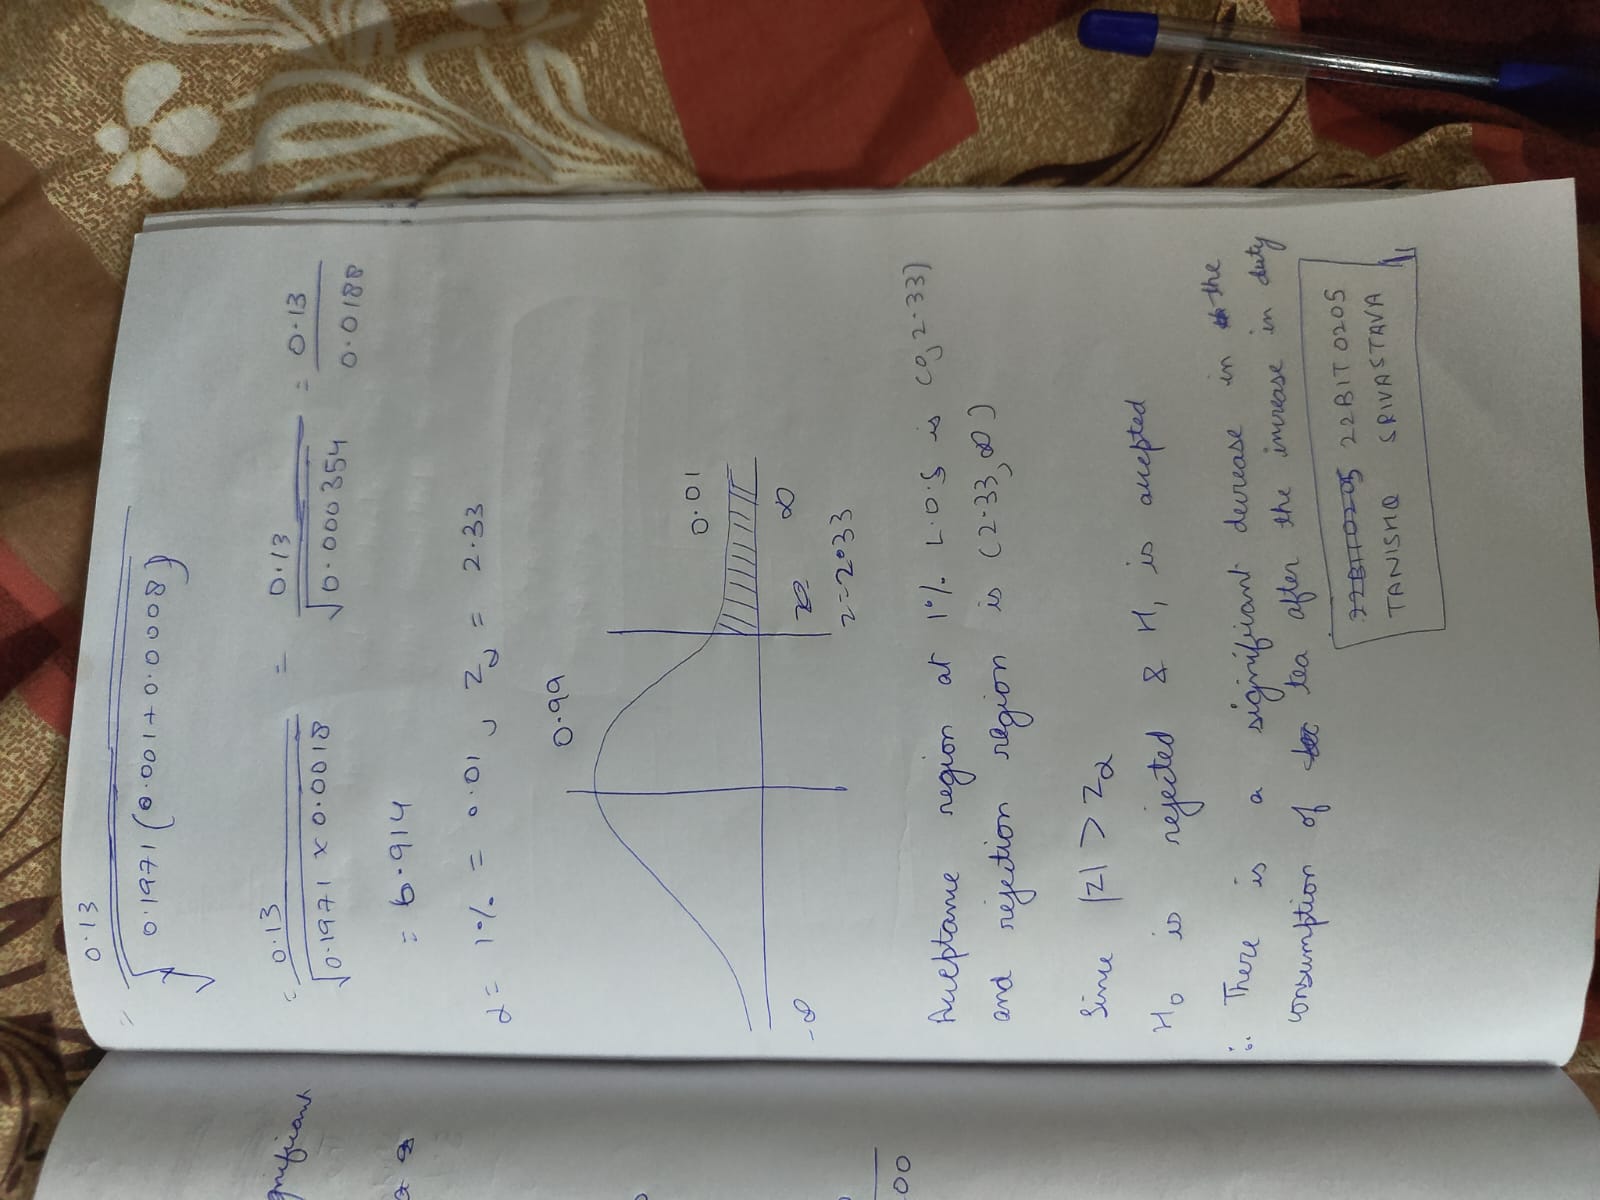 = 0.13 / √(0.1971 (0.001 + 0.0008))
= 0.13 / √(0.1971 x 0.0018) = 0.13 / √0.000354 = 0.13 / 0.0188
= 6.914
α = 1% = 0.01, Zα = 2.33
0.99
0.01
-∞ ∞
z=2.33
Acceptance region at 1% L.O.S is (0, 2.33)
and rejection region is (2.33, ∞)
Since |Z| > Zα
H₀ is rejected & H₁ is accepted
∴ There is a significant decrease in the
consumption of tea after the increase in duty
22BIT0205 22BIT0205
TANISHQ SRIVASTAVA
gnificant
00